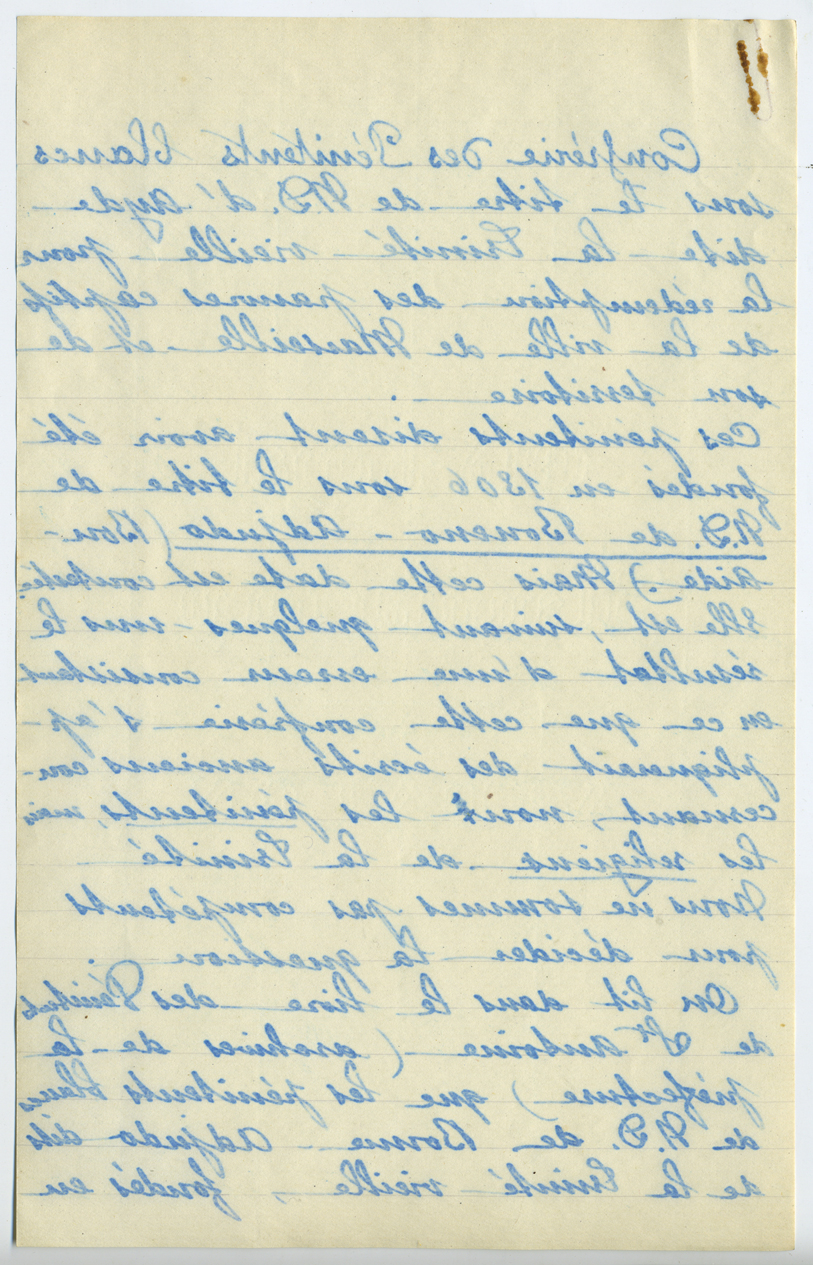 Confrérie des Pénitents blancs
sous le titre de N.D. d'Ayde
dite la Trinité vieille pour
la rédemption des pauvres captifs
de la ville de Marseille et de
son territoire.
Ces pénitents disent avoir été
fondés en 1306 sous le titre de
N.D. de Boneno-Adjudo (Bon-
Aide). Mais cette date est contestée.
Elle est, suivant quelques-uns le
résultat d'une erreur consistant
en ce que cette confrérie s'ap-
pliquait des écrits anciens con-
cernant, non les pénitents, mais
les religieux de la Trinité
Nous ne sommes pas compétents
pour décider la question.
On lit dans le livre des Pénitents
de St Antoine (archives de la
préfecture) que les pénitents blancs
de N.D. de Bonne Adjudo dits
de la Trinité vieille, fondés en